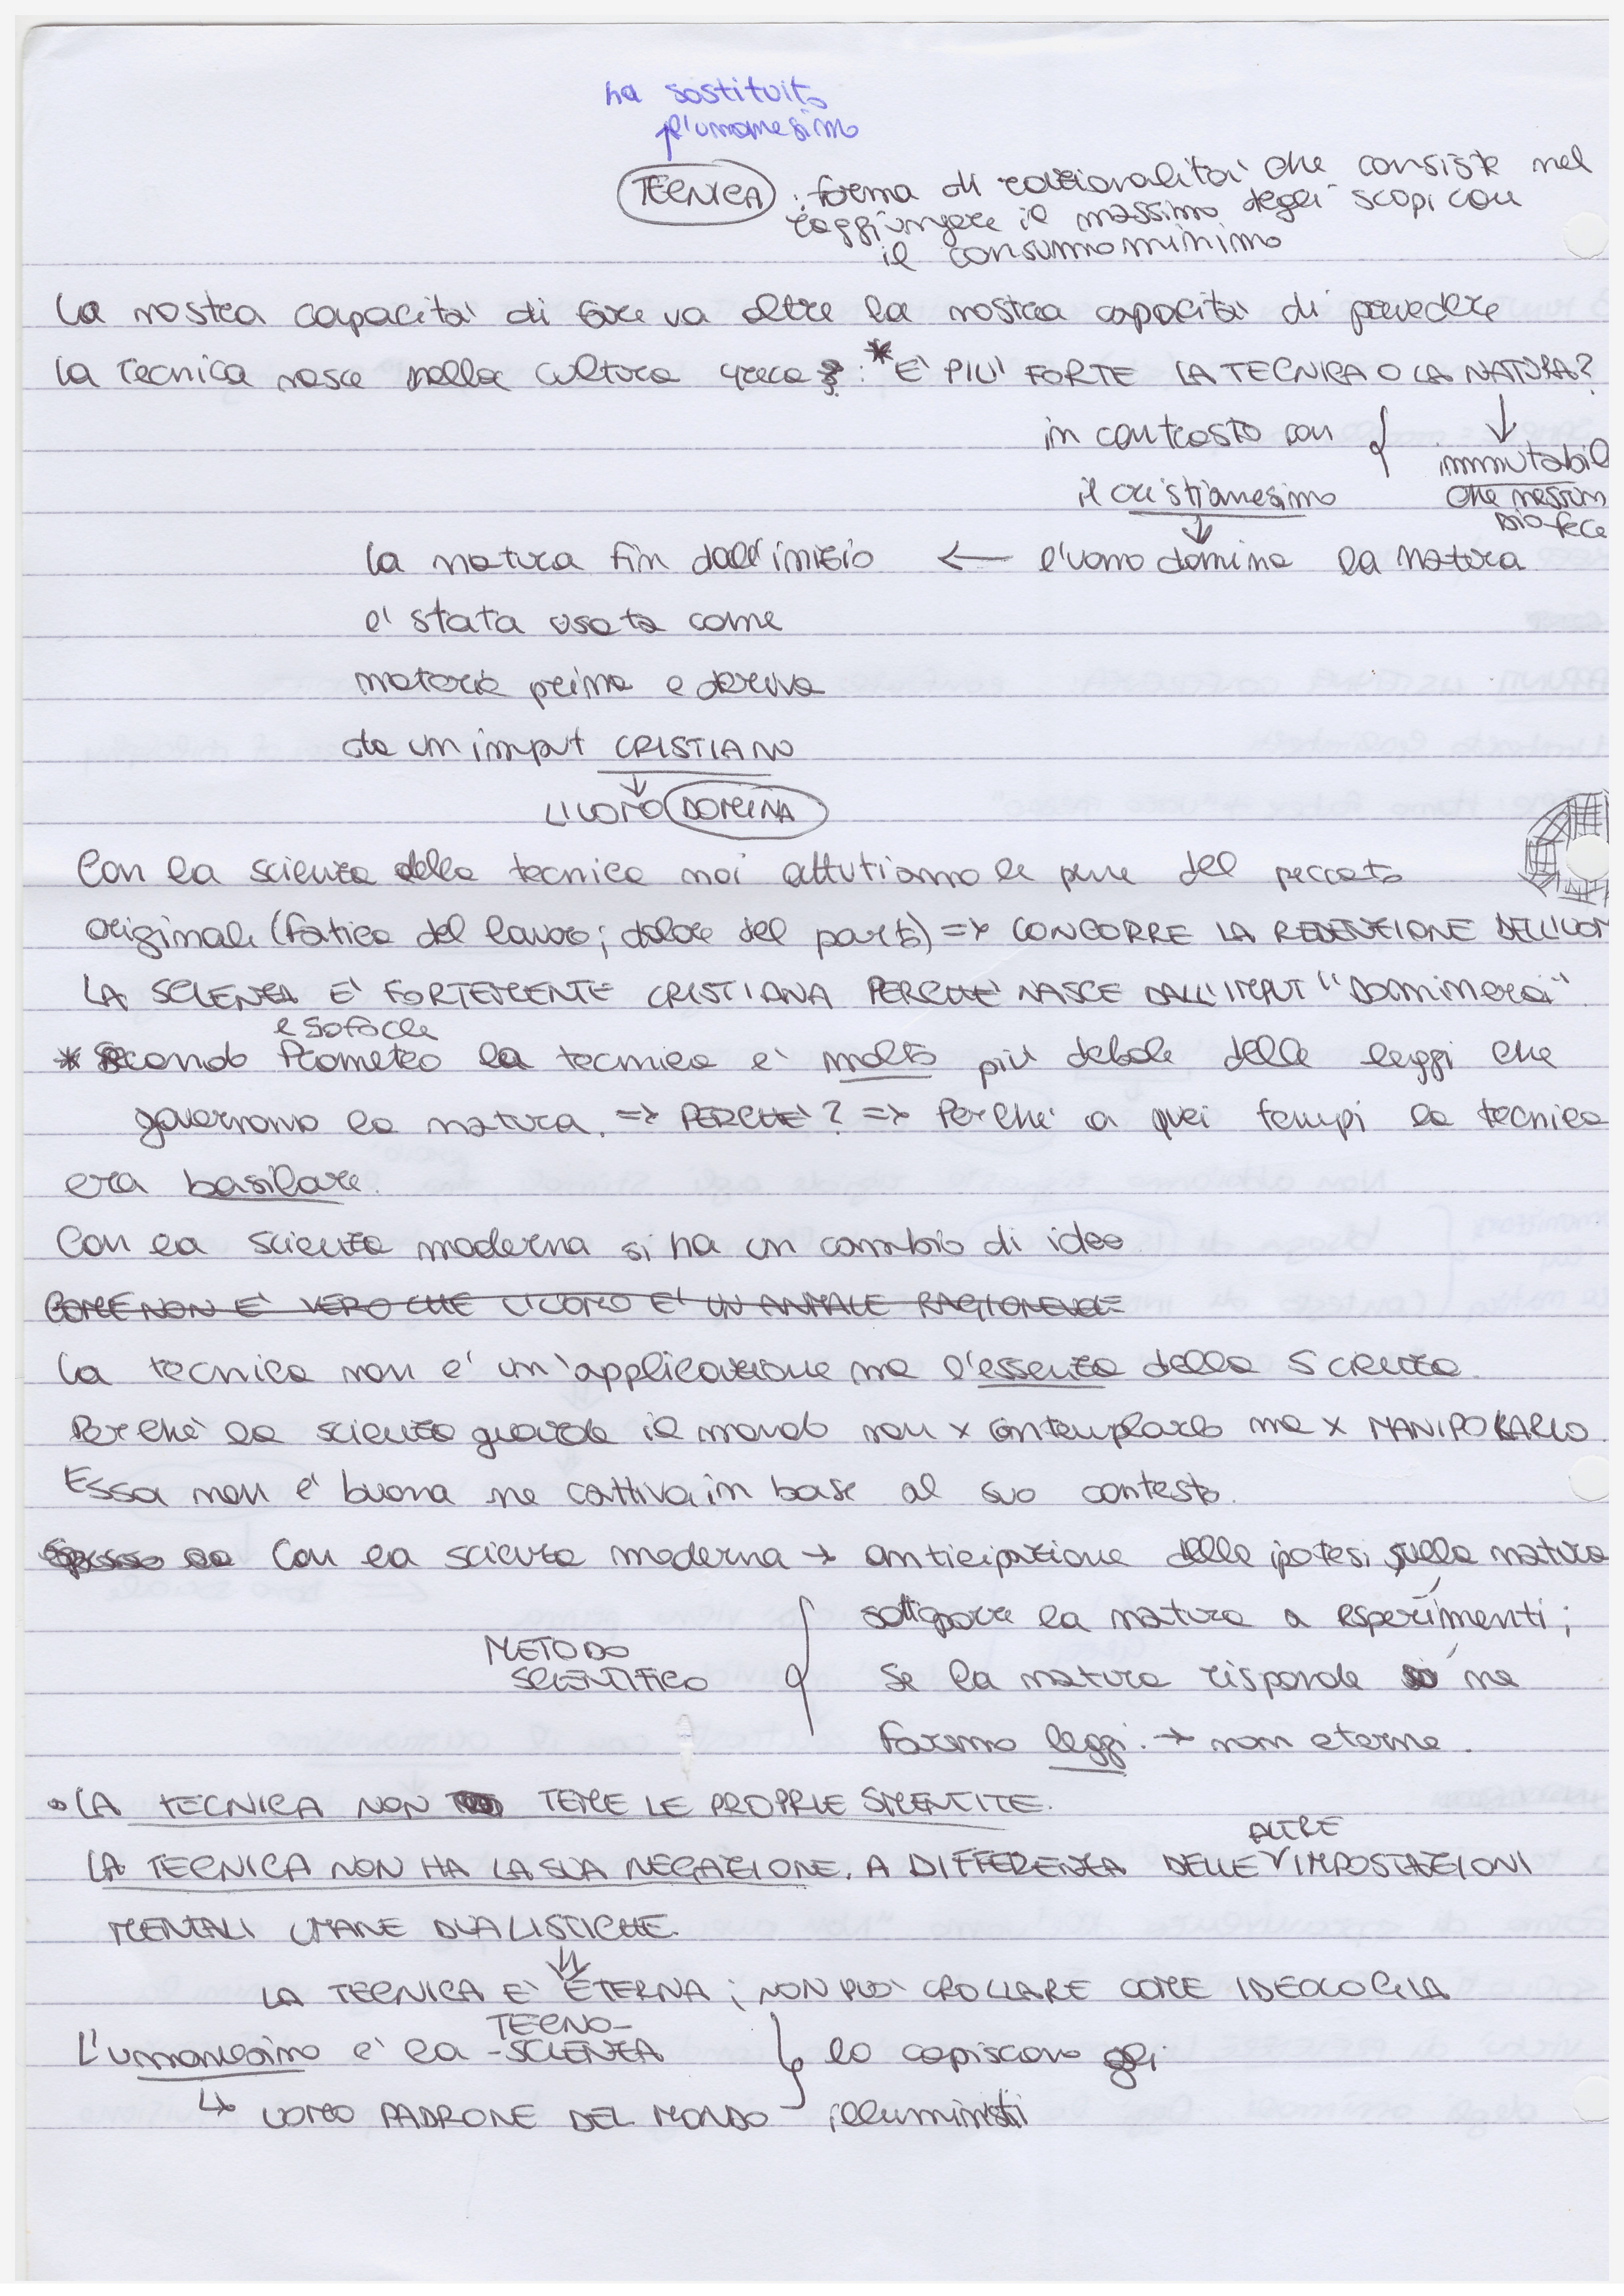 ha sostituito
l'umanesimo
TECNICA : forma di razionalità che consiste nel
raggiungere il massimo degli scopi con
il consumo minimo
La nostra capacità di fare va oltre la nostra capacità di prevedere
La tecnica nasce nella cultura greca : * E' PIU' FORTE LA TECNICA O LA NATURA?
in contrasto con
il cristianesimo
immutabil
che nessun
Dio fece
la natura fin dall'inizio ← l'uomo domina la natura
e' stata usata come
materia prima e deriva
da un imput CRISTIANO
L'UOMO DOMINA
Con la scienza della tecnica noi attutiamo le pene del peccato
originale (fatica del lavoro; dolore del parto) => CONCORRE LA REDENZIONE DELL'UOM
LA SCIENZA E' FORTEMENTE CRISTIANA PERCHE' NASCE DALL'IMPUT "Dominerai"
e Sofocle
* Secondo Prometeo la tecnica e' molto più debole delle leggi che
governano la natura. => PERCHE'? => Perché a quei tempi la tecnica
era basilare.
Con la scienza moderna si ha un cambio di idee
COME NON E' VERO CHE L'UOMO E' UN ANIMALE RAGIONEVOLE
La tecnica non e' un'applicazione ma l'essenza della Scienza.
Perché la scienza guarda il mondo non x contemplarlo ma x MANIPOLARLO.
Essa non e' buona ne cattiva in base al suo contesto.
Con la scienza moderna → anticipazione delle ipotesi sulla natura
sottoporre la natura a esperimenti;
METODO
SCIENTIFICO
Se la natura risponde sì ne
faremo leggi. → non eterne.
• LA TECNICA NON TEME LE PROPRIE SMENTITE.
ALTRE
LA TECNICA NON HA LA SUA NEGAZIONE, A DIFFERENZA DELLE IMPOSTAZIONI
MENTALI UMANE DUALISTICHE.
LA TECNICA E' ETERNA; NON PUO' CROLLARE COME IDEOLOGIA
TECNO-
L'umanesimo e' la -SCIENZA
lo capiscono gli
↳ UOMO PADRONE DEL MONDO
illuministi